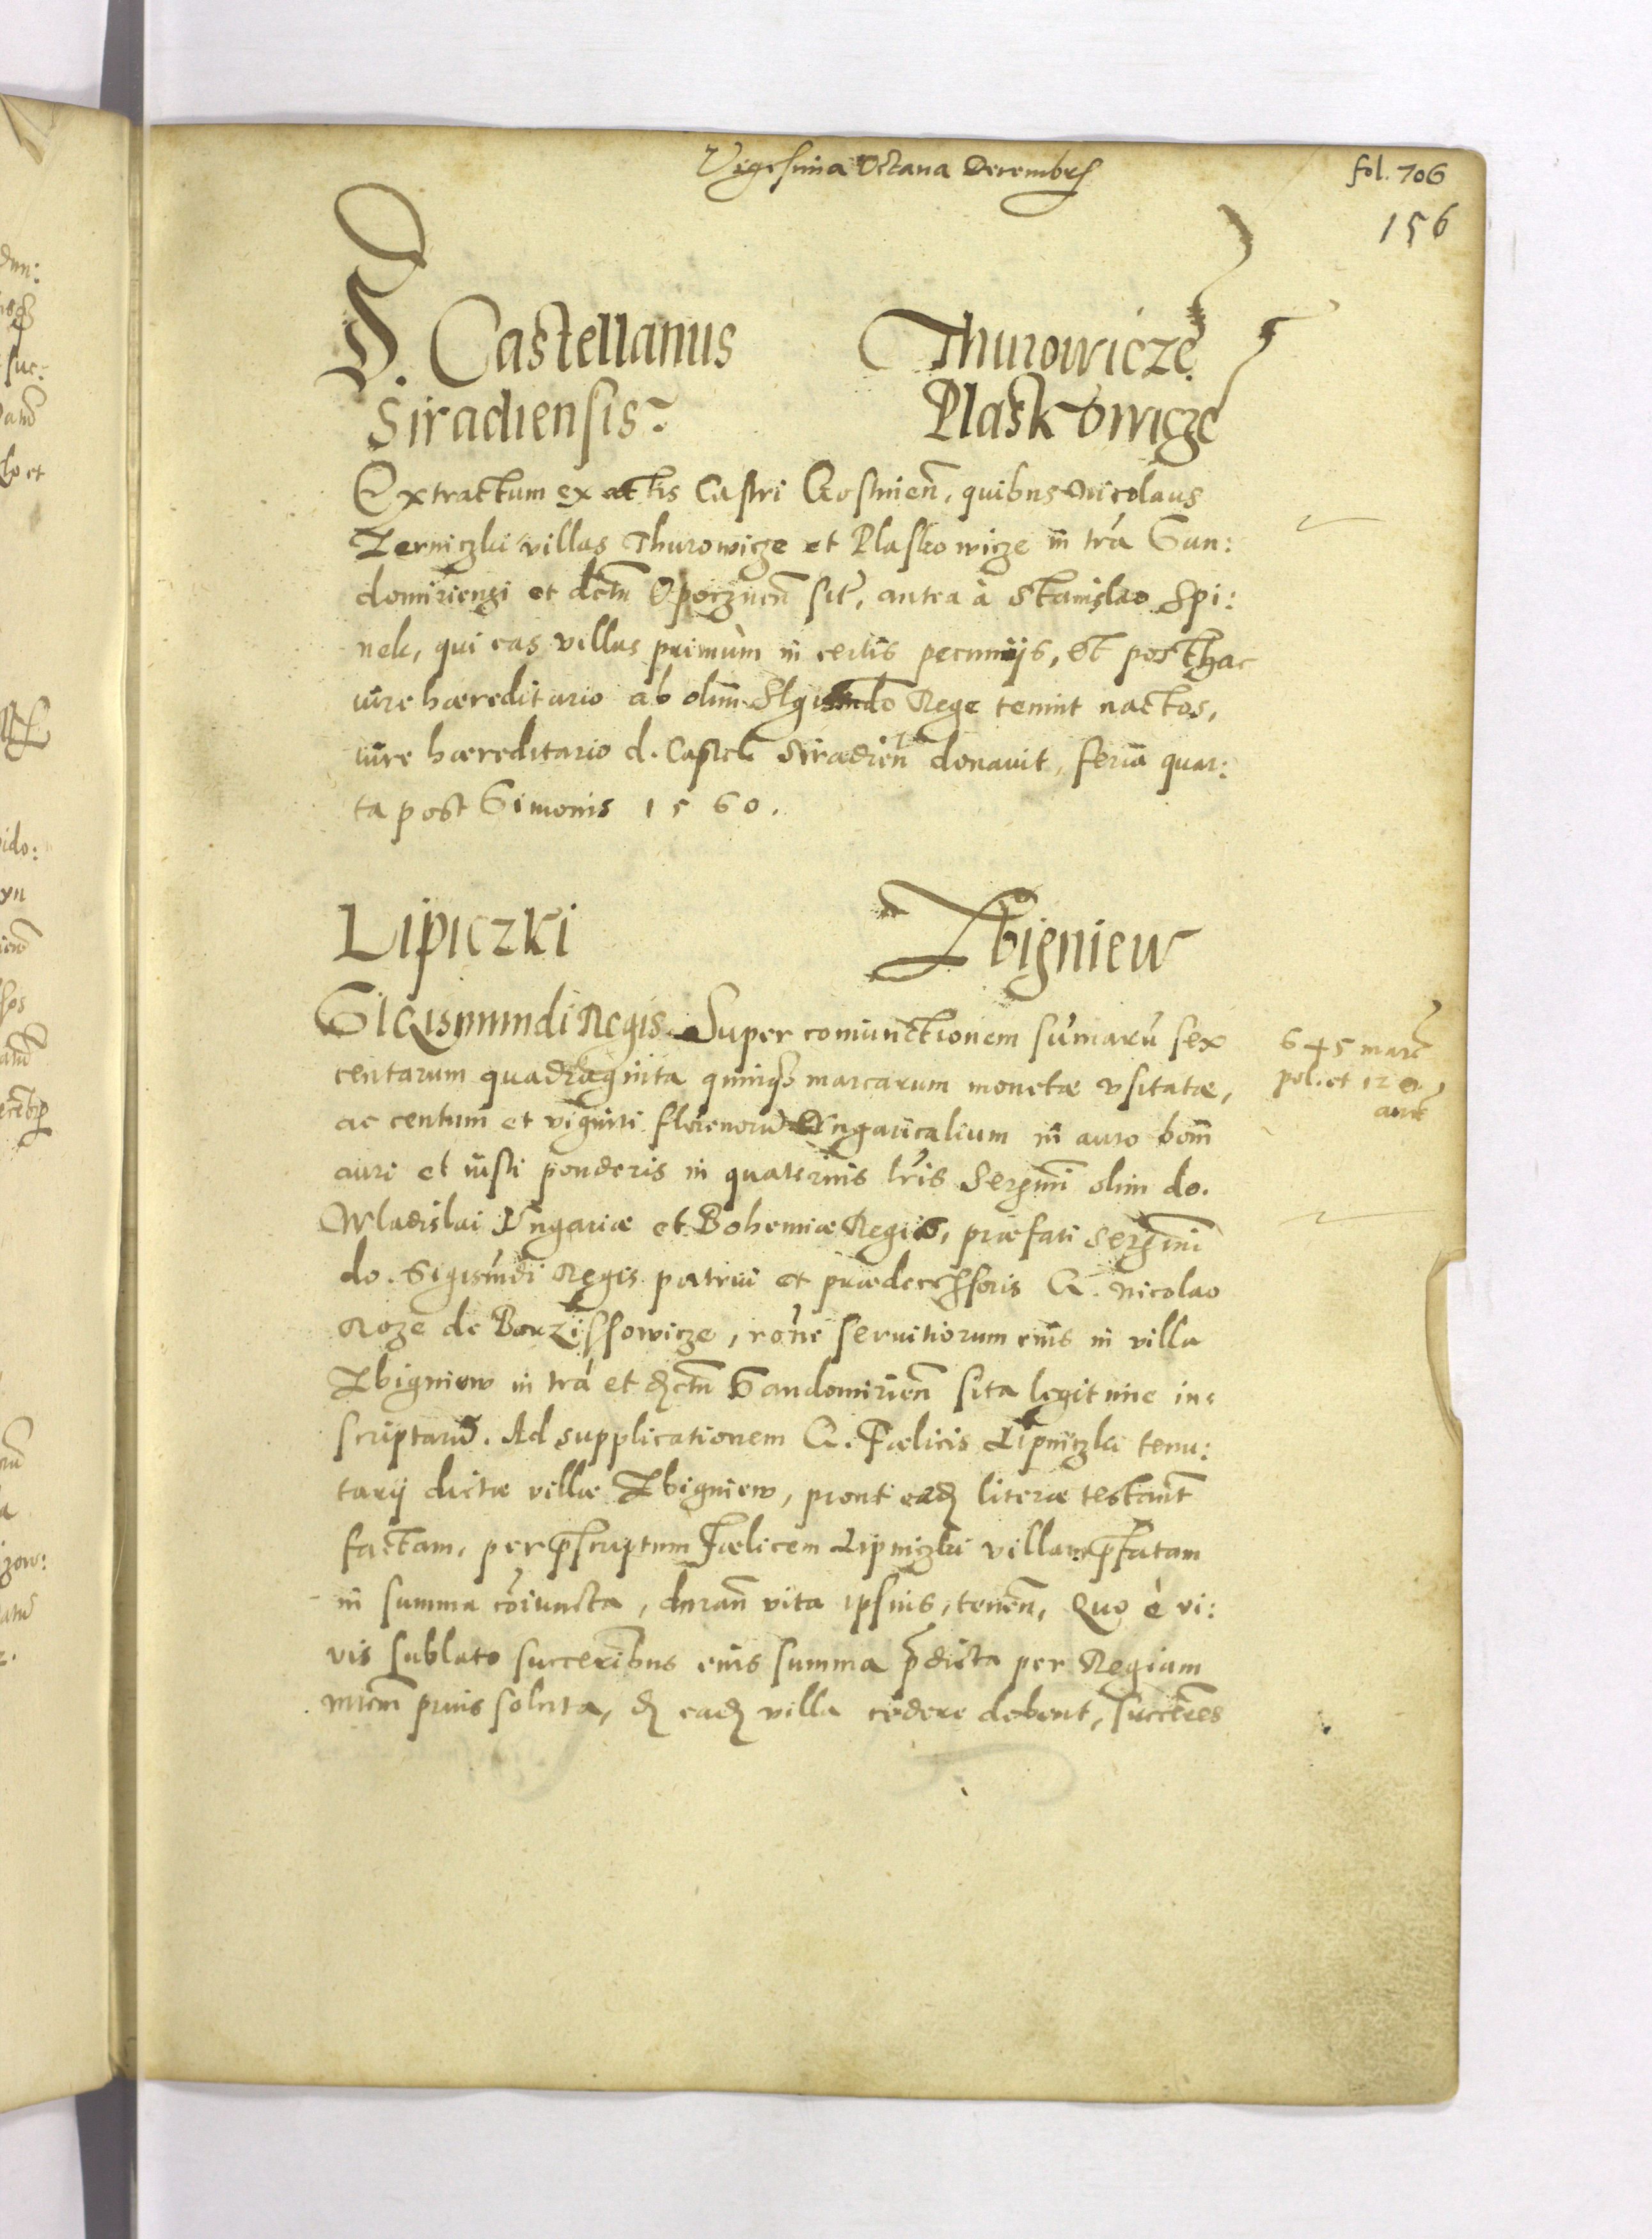 Vigesima Octaua Decembris
fol. 706
156
D. Castellanus Thurowicze
Siradiensis. Plaskowicze
Extractum ex actis Castri Gostinen̄, quibus Nicolaus
Zerniczki villas Thurowicze et Plaskowicze in tr̄a San:
domiriensi et dctu Opocznen̄ sit̄, antea à Stanislao Spi:
nek, qui eas villas primùm in certis pecuniis, et posthac
iure hæreditario ab olim Sigismūdo Rege tenuit nactos,
iure hæreditario d. Castell Siradien̄ donauit, feria quar:
ta post Simonis 1560.
Lipiczki Zbigniew
Sigismundi Regis. Super coniunctionem sūmarū sex
centarum quadraginta quinq3 marcarum monetæ vsitatæ,
ac centum et viginti florenorū Vngaricalium in auro bom̄
auri et iusti ponderis in quaternis lr̄is Serm̄i olim do.
Wladislai Vngariæ et Bohemiæ Regis, præfati Serm̄i
do. Sigismūdi Regis patrui et prædecessoris G. Nicolao
Roze de Borzissowicze, rōne seruitiorum eius in villa
Zbigniew in tr̄a et dctu Sandomirien̄ sita legitime in:
scriptarū. Ad supplicationem G. Fœlicis Lipniczki tenu:
tarij dictæ villæ Zbigniew, prout eæd literæ testant̄
factam, per p̄scriptum Fœlicem Lipniczki villam p̄fatam
in summa cōiuncta, duran̄ vita ipsius, tenen̄, Quo è vi:
vis sublato successoribus eius summa p̄dicta per Regiam
mtem prius soluta, d ead villa cedere debent, succēres
645 marc̄
pol. et 120
aur̄